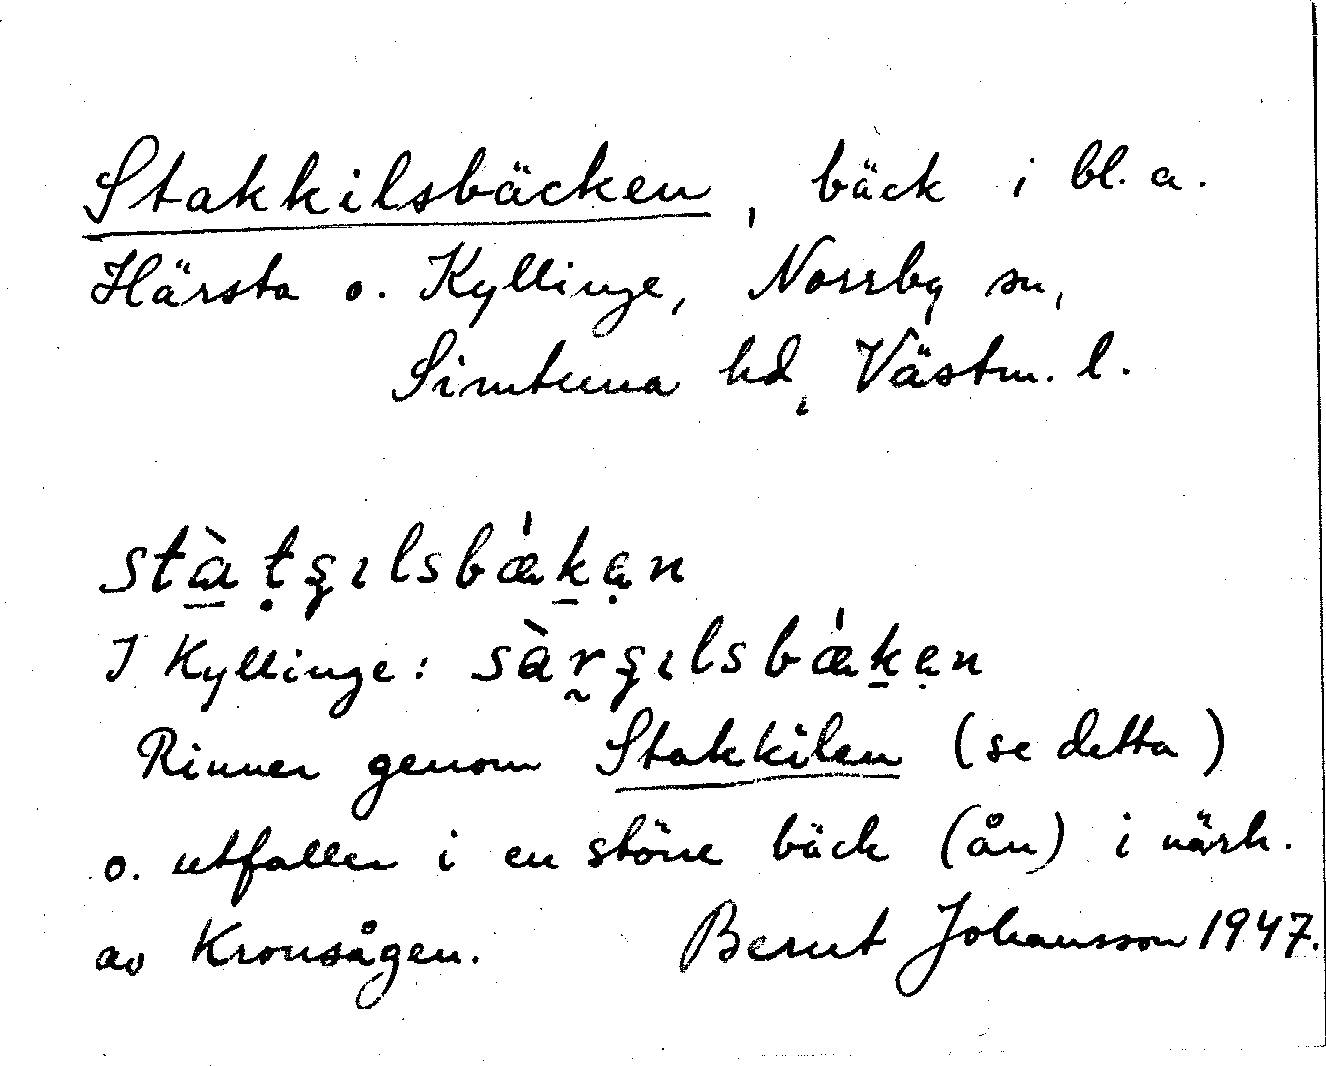 Stakkilsbäcken, bäck i bl. a.
Härsta o. Kyllinge, Norrby sn,
Simtuna hd, Västm. l.
stà̱ṭʂɩlsbǽḵạn
I Kyllinge: sàr̰ʂɩlsbǽḵạn
Rinner genom Stakkilen (se detta)
o. utfaller i en större bäck (ån) i närh.
av Kronsågen. Bernt Johansson 1947.